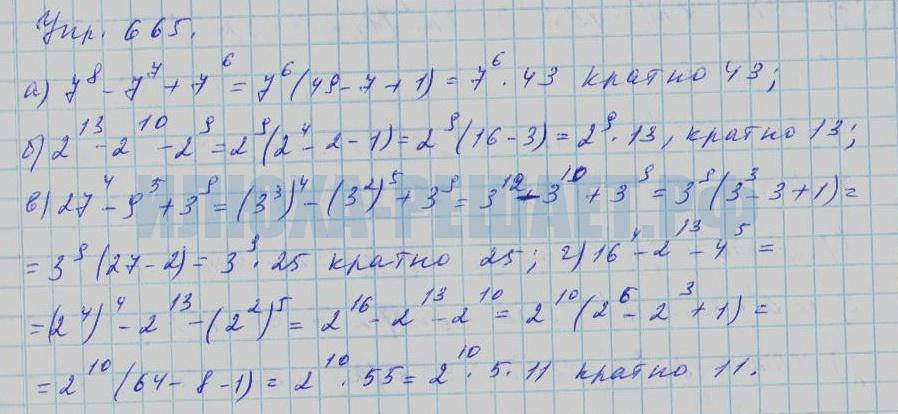 Упр. 665.
а) 7⁸ - 7⁷ + 7⁶ = 7⁶(49 - 7 + 1) = 7⁶ · 43 кратно 43;
б) 2¹³ - 2¹⁰ - 2⁹ = 2⁹(2⁴ - 2 - 1) = 2⁹(16 - 3) = 2⁹ · 13, кратно 13;
ИЛЮХА-РЕШАЕТ.РФ
в) 27⁴ - 9⁵ + 3⁹ = (3³)⁴ - (3²)⁵ + 3⁹ = 3¹² - 3¹⁰ + 3⁹ = 3⁹(3³ - 3 + 1) =
= 3⁹(27 - 2) = 3⁹ · 25 кратно 25; г) 16⁴ - 2¹³ - 4⁵ =
= (2⁴)⁴ - 2¹³ - (2²)⁵ = 2¹⁶ - 2¹³ - 2¹⁰ = 2¹⁰(2⁶ - 2³ + 1) =
= 2¹⁰(64 - 8 - 1) = 2¹⁰ · 55 = 2¹⁰ · 5 · 11 кратно 11.